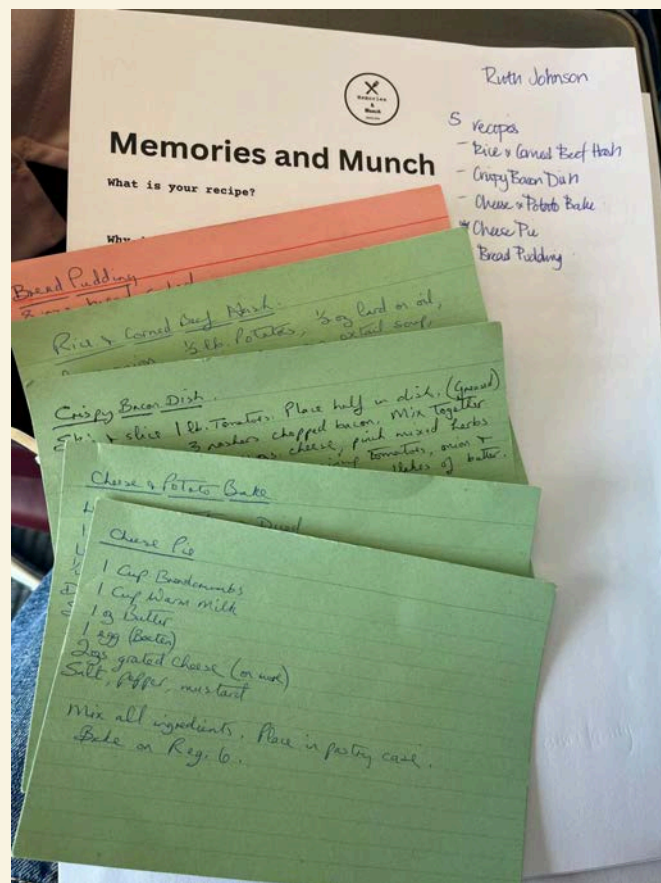 Memories
&
Munch
Memories and Munch
What is your recipe?
Why
Ruth Johnson
5 recipes
- Rice & Corned Beef Hash
- Crispy Bacon Dish
- Cheese & Potato Bake
* Cheese Pie
Bread Pudding
Bread Pudding
Rice & Corned Beef Hash.
½ lb. Potatoes, ½ oz lard or oil,
oxtail soup,
Crispy Bacon Dish.
Skin & slice 1 lb. Tomatoes. Place half in dish. (Greased)
3 rashers chopped bacon, Mix Together
cheese, pinch mixed herbs
tomatoes, onion &
flakes of butter.
Cheese & Potato Bake
Cheese Pie
1 Cup Breadcrumbs
1 Cup Warm Milk
1 oz Butter
1 egg (Beaten)
2ozs grated cheese (or more)
Salt, pepper, mustard
Mix all ingredients. Place in pastry case.
Bake on Reg. 6.